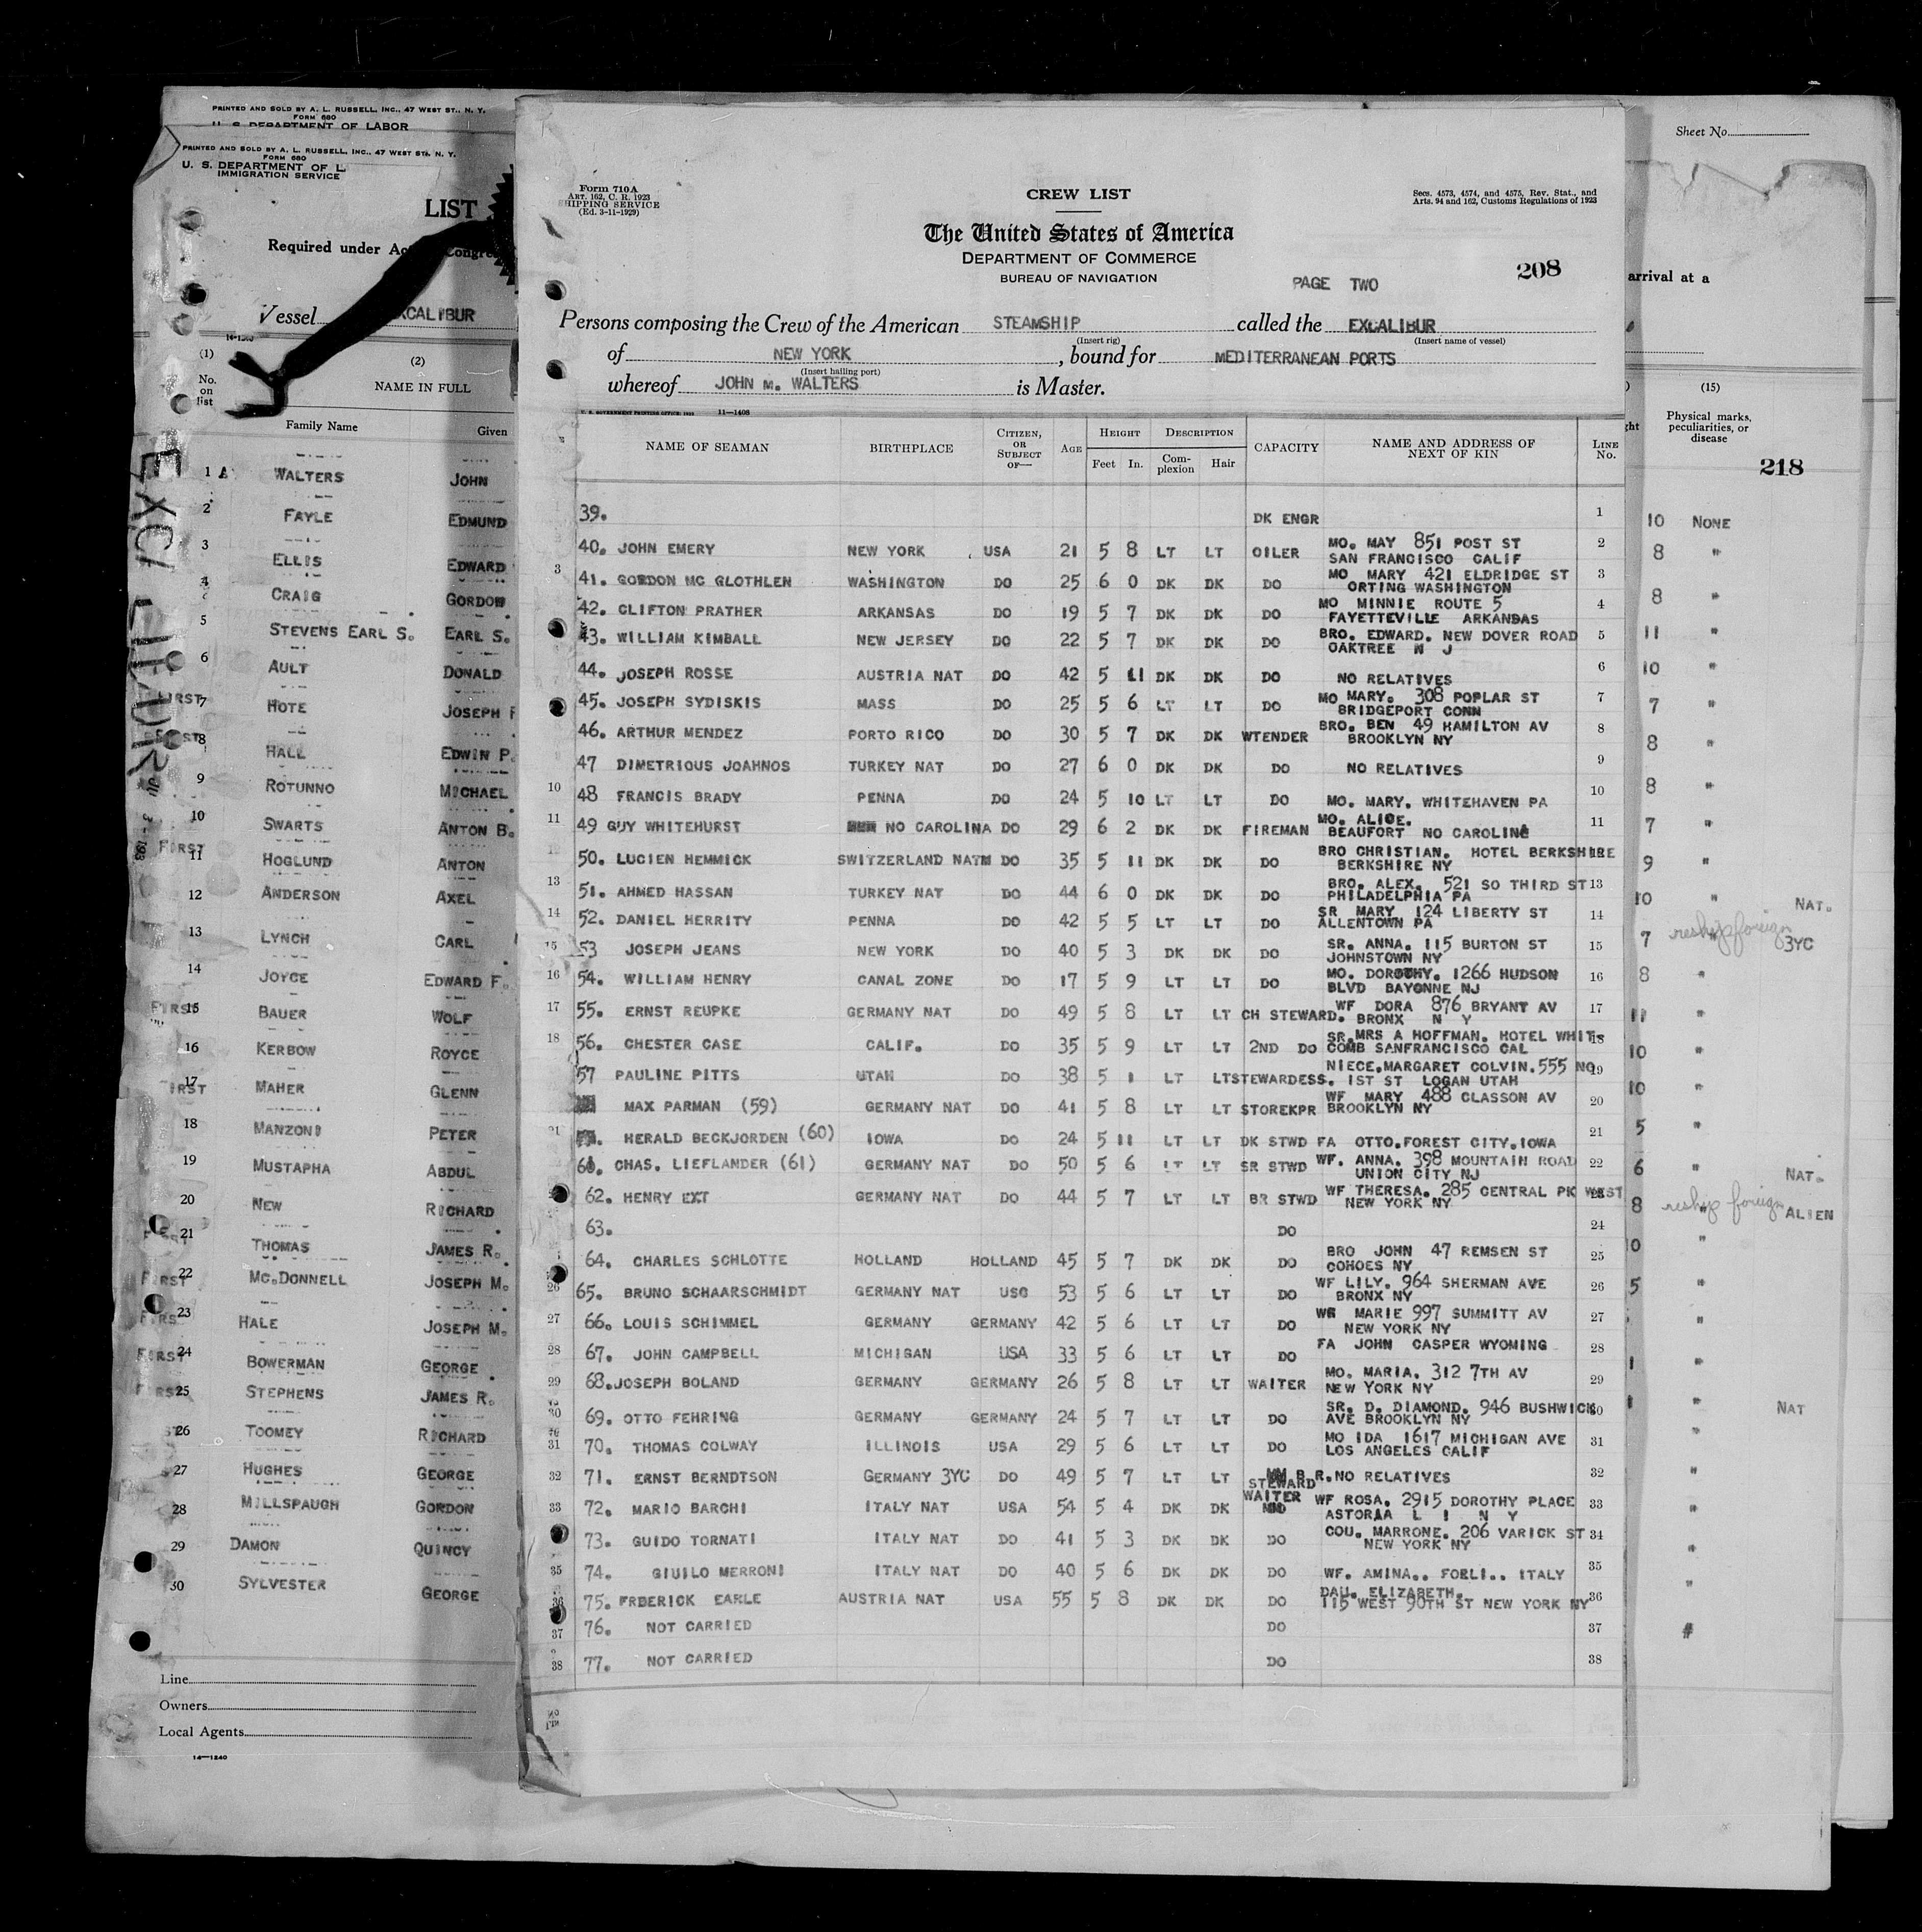 PRINTED AND SOLD BY A. L. RUSSELL, INC., 47 WEST ST., N. Y.
FORM 680
U. S. DEPARTMENT OF LABOR
PRINTED AND SOLD BY A. L. RUSSELL, INC., 47 WEST ST., N. Y.
FORM 680
U. S. DEPARTMENT OF L
IMMIGRATION SERVICE
LIST
Required under Ac Congre
Vessel XCALIBUR
(1) (2)
No. on list NAME IN FULL
Family Name Given
1 WALTERS JOHN
2 FAYLE EDMUND
3 ELLIS EDWARD
4 CRAIG GORDON
5 STEVENS EARL S. EARL S.
6 AULT DONALD
7 HOTE JOSEPH F
8 HALL EDWIN P.
9 ROTUNNO MICHAEL
10 SWARTS ANTON B.
FIRST
11 HOGLUND ANTON
12 ANDERSON AXEL
13 LYNCH CARL
14 JOYCE EDWARD F.
FIRST 15 BAUER WOLF
16 KERBOW ROYCE
17 MAHER GLENN
18 MANZONI PETER
19 MUSTAPHA ABDUL
20 NEW RICHARD
21 THOMAS JAMES R.
FIRST 22 MC.DONNELL JOSEPH M.
23 HALE JOSEPH M.
FIRST 24 BOWERMAN GEORGE
25 STEPHENS JAMES R.
26 TOOMEY RICHARD
27 HUGHES GEORGE
28 MILLSPAUGH GORDON
29 DAMON QUINCY
30 SYLVESTER GEORGE
Line
Owners
Local Agents
14—1240
Form 710A
ART. 162, C. R. 1923
SHIPPING SERVICE
(Ed. 3-11-1929)
CREW LIST
Secs. 4573, 4574, and 4575, Rev. Stat., and
Arts. 94 and 162, Customs Regulations of 1923
The United States of America
DEPARTMENT OF COMMERCE
BUREAU OF NAVIGATION
208
PAGE TWO
Persons composing the Crew of the American STEAMSHIP called the EXCALIBUR
(Insert rig) (Insert name of vessel)
of NEW YORK, bound for MEDITERRANEAN PORTS
(Insert hailing port)
whereof JOHN M. WALTERS is Master.
U. S. GOVERNMENT PRINTING OFFICE: 1929 11—1408
NAME OF SEAMAN BIRTHPLACE CITIZEN, OR SUBJECT OF— AGE HEIGHT Feet In. DESCRIPTION Complexion Hair CAPACITY NAME AND ADDRESS OF NEXT OF KIN LINE No.
39. DK ENGR 1
40. JOHN EMERY NEW YORK USA 21 5 8 LT LT OILER MO. MAY 851 POST ST 2
SAN FRANCISCO CALIF
41. GORDON MC GLOTHLEN WASHINGTON DO 25 6 0 DK DK DO MO MARY 421 ELDRIDGE ST 3
ORTING WASHINGTON
42. CLIFTON PRATHER ARKANSAS DO 19 5 7 DK DK DO MO MINNIE ROUTE 5 4
FAYETTEVILLE ARKANSAS
43. WILLIAM KIMBALL NEW JERSEY DO 22 5 7 DK DK DO BRO. EDWARD. NEW DOVER ROAD 5
OAKTREE N J
44. JOSEPH ROSSE AUSTRIA NAT DO 42 5 11 DK DK DO NO RELATIVES 6
45. JOSEPH SYDISKIS MASS DO 25 5 6 LT LT DO MO MARY. 308 POPLAR ST 7
BRIDGEPORT CONN
46. ARTHUR MENDEZ PORTO RICO DO 30 5 7 DK DK WTENDER BRO. BEN 49 HAMILTON AV 8
BROOKLYN NY
47 DIMETRIOUS JOAHNOS TURKEY NAT DO 27 6 0 DK DK DO NO RELATIVES 9
48 FRANCIS BRADY PENNA DO 24 5 10 LT LT DO MO. MARY. WHITEHAVEN PA 10
49 GUY WHITEHURST NO CAROLINA DO 29 6 2 DK DK FIREMAN MO. ALICE. 11
BEAUFORT NO CAROLINE
50. LUCIEN HEMMICK SWITZERLAND NATM DO 35 5 11 DK DK DO BRO CHRISTIAN. HOTEL BERKSHIRE
BERKSHIRE NY
51. AHMED HASSAN TURKEY NAT DO 44 6 0 DK DK DO BRO. ALEX. 521 SO THIRD ST 13
PHILADELPHIA PA
52. DANIEL HERRITY PENNA DO 42 5 5 LT LT DO SR MARY 124 LIBERTY ST 14
ALLENTOWN PA
53 JOSEPH JEANS NEW YORK DO 40 5 3 DK DK DO SR. ANNA. 115 BURTON ST 15
JOHNSTOWN NY
54. WILLIAM HENRY CANAL ZONE DO 17 5 9 LT LT DO MO. DOROTHY. 1266 HUDSON 16
BLVD BAYONNE NJ
55. ERNST REUPKE GERMANY NAT DO 49 5 8 LT LT CH STEWARD. WF DORA 876 BRYANT AV 17
BRONX N Y
56. CHESTER CASE CALIF. DO 35 5 9 LT LT 2ND DO SR.MRS A HOFFMAN. HOTEL WHIT- 18
COMB SANFRANCISCO CAL
57 PAULINE PITTS UTAH DO 38 5 1 LT LT STEWARDESS. NIECE.MARGARET COLVIN.555 NO 19
1ST ST LOGAN UTAH
MAX PARMAN (59) GERMANY NAT DO 41 5 8 LT LT STOREKPR WF MARY 488 CLASSON AV 20
BROOKLYN NY
HERALD BECKJORDEN (60) IOWA DO 24 5 11 LT LT DK STWD FA OTTO.FOREST CITY.IOWA 21
CHAS. LIEFLANDER (61) GERMANY NAT DO 50 5 6 LT LT SR STWD WF. ANNA. 398 MOUNTAIN ROAD 22
UNION CITY NJ
62. HENRY EXT GERMANY NAT DO 44 5 7 LT LT BR STWD WF THERESA. 285 CENTRAL PK WEST
NEW YORK NY
63. DO 24
64. CHARLES SCHLOTTE HOLLAND HOLLAND 45 5 7 DK DK DO BRO JOHN 47 REMSEN ST 25
COHOES NY
65. BRUNO SCHAARSCHMIDT GERMANY NAT USG 53 5 6 LT LT DO WF LILY. 964 SHERMAN AVE 26
BRONX NY
66. LOUIS SCHIMMEL GERMANY GERMANY 42 5 6 LT LT DO MARIE 997 SUMMITT AV 27
NEW YORK NY
67. JOHN CAMPBELL MICHIGAN USA 33 5 6 LT LT DO FA JOHN CASPER WYOMING 28
68.JOSEPH BOLAND GERMANY GERMANY 26 5 8 LT LT WAITER MO. MARIA. 312 7TH AV 29
NEW YORK NY
69. OTTO FEHRING GERMANY GERMANY 24 5 7 LT LT DO SR. D. DIAMOND. 946 BUSHWICK 30
AVE BROOKLYN NY
70. THOMAS COLWAY ILLINOIS USA 29 5 6 LT LT DO MO IDA 1617 MICHIGAN AVE 31
LOS ANGELES CALIF
71. ERNST BERNDTSON GERMANY 3YC DO 49 5 7 LT LT B.R. STEWARD NO RELATIVES 32
72. MARIO BARCHI ITALY NAT USA 54 5 4 DK DK WAITER WF ROSA. 2915 DOROTHY PLACE 33
ASTORIA L I N Y
73. GUIDO TORNATI ITALY NAT DO 41 5 3 DK DK DO COU. MARRONE. 206 VARICK ST 34
NEW YORK NY
74. GIUILO MERRONI ITALY NAT DO 40 5 6 DK DK DO WF. AMINA.. FORLI.. ITALY 35
75. FRDERICK EARLE AUSTRIA NAT USA 55 5 8 DK DK DO DAU. ELIZABETH. 36
115 WEST 90TH ST NEW YORK NY
76. NOT CARRIED DO 37
77. NOT CARRIED DO 38
Sheet No.
arrival at a
(15)
Physical marks, peculiarities, or disease
218
10 NONE
8 "
8 "
11 "
10 "
7 "
8 "
8 "
7 "
9 "
10 " NAT.
7 reshyp foreign 3YC
8 "
11 "
10 "
10 "
5 "
6 " NAT.
8 reshyp foreign ALIEN
10 "
5 "
NAT